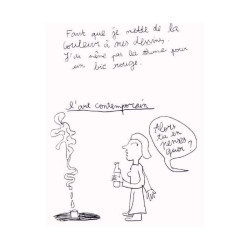 Faut que je mette de la
couleur à mes dessins.
J'ai même pas la thune pour
un bic rouge.
l'art contemporain
Alors
tu en
penses
quoi?